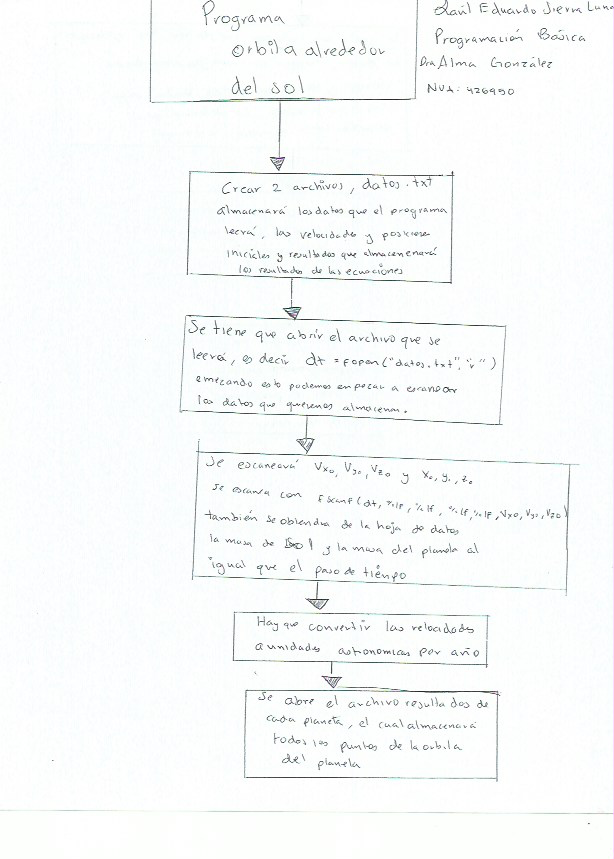 Programa
orbita alrededor
del sol
Raúl Eduardo Sierra Luna
Programación Básica
Dra Alma González
NUA: 426990
Crear 2 archivos, datos.txt
almacenará los datos que el programa
leerá, las velocidades y posiciones
iniciales y resultados que almacenenará
los resultados de las ecuaciones
Se tiene que abrir el archivo que se
leerá, es decir dt = fopen("datos.txt","r")
emezando esto podemos empezar a escanear
los datos que queremos almacenar.
Se escaneará Vx0, Vy0, Vz0 y x0, y0, z0
se escanea con fscanf(dt, %lf, %lf, %lf, %lf, Vx0, Vy0, Vz0)
también se obtendra de la hoja de datos
la masa de sol y la masa del planeta al
igual que el paso de tiempo
Hay que convertir las velocidades
a unidades astronomicas por año
Se abre el archivo resultados de
cada planeta, el cual almacenará
todos los puntos de la orbita
del planeta